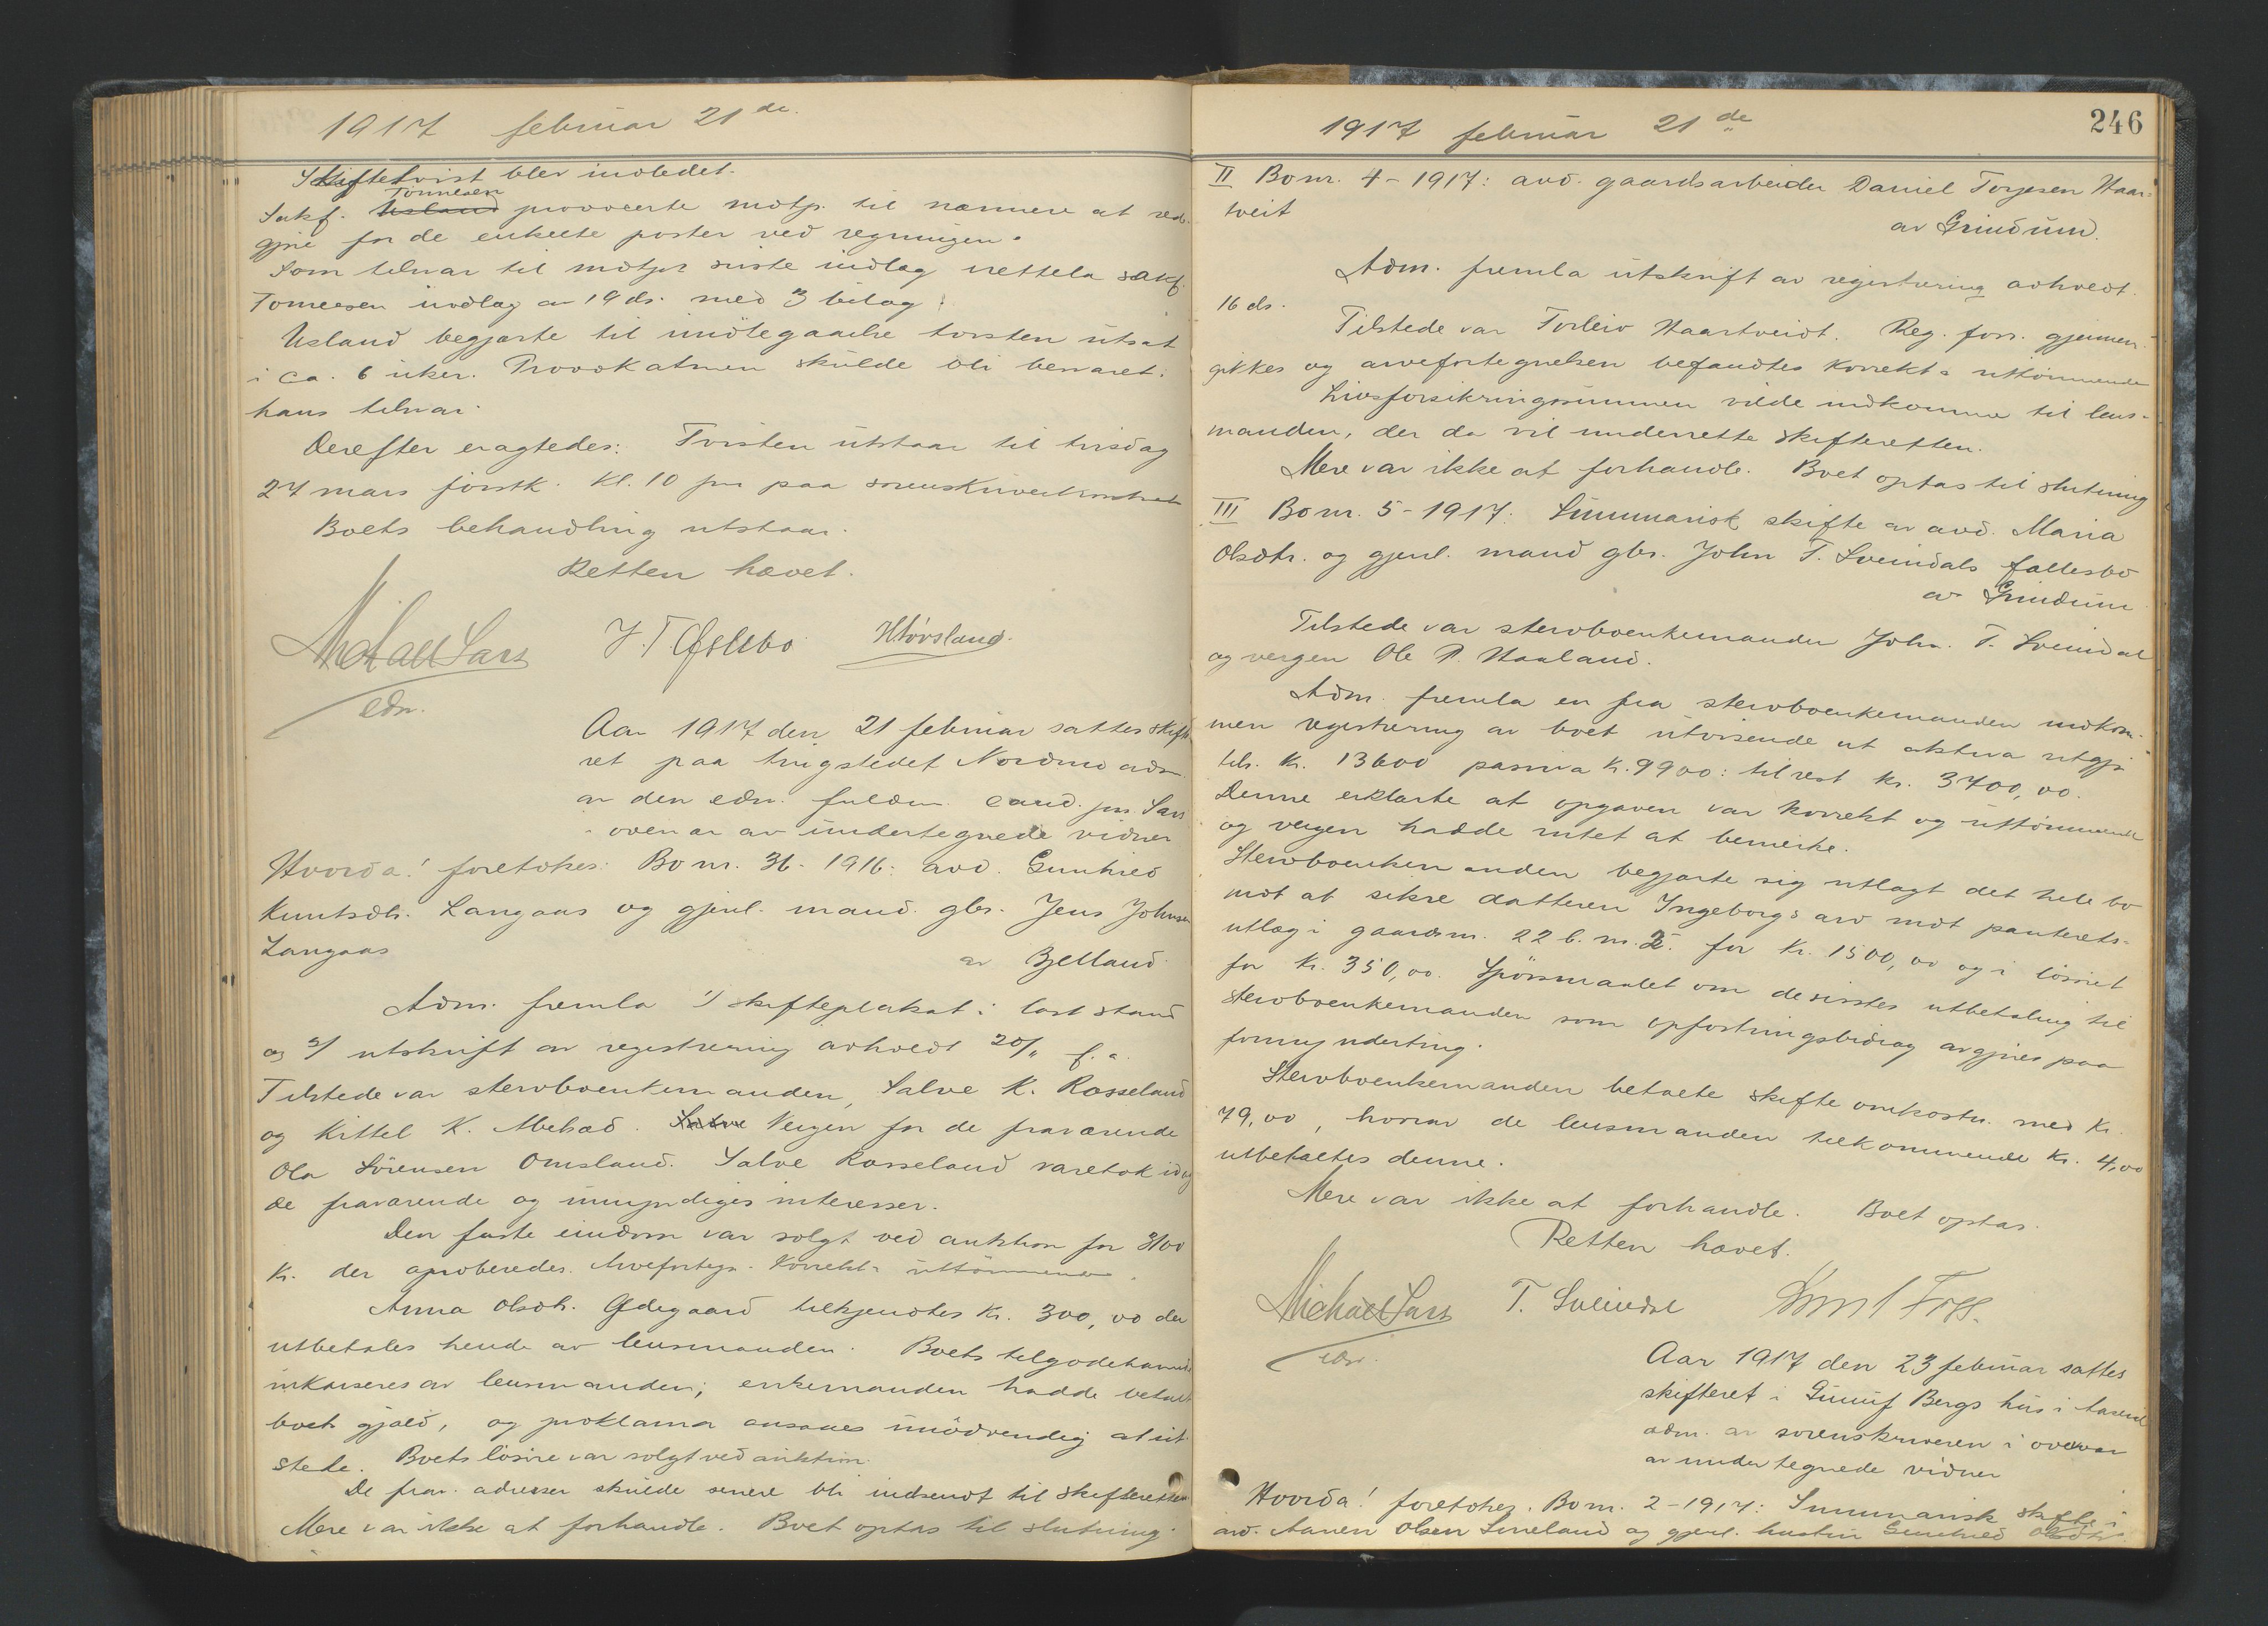 1917 februar 21 de.
Skiftetvist blev indledet.
Tønnesen
Sakf. Usland provocerte motp. til nærmere at rede-
gjøre for de enkelte poster ved regningen.
Som tilsvar til motpts siste indlæg nettela sakf.
Tønnesen indlæg av 19 ds. med 3 bilag.
Usland begjærte til imøtegaaelse tvisten utsat
i ca. 6 uker. Provokationen skulde bli besvaret i
hans tilsvar.
Derefter eragtedes: Tvisten utstaar til tirsdag
27 mars førstk. kl. 10 fm paa sorenskriverkontoret
Boets behandling utstaar.
Retten hævet.
Michael Sars
edsv.
J. T. Øslebø H Lövsland.
Aar 1917 den 21 februar sattes skifte-
ret paa tingstedet Nordmo adm.
av den edsv. fuldm. cand. jur. Sars
i overvær av undertegnede vidner
Hvorda! foretokes: Bo nr. 36 - 1916: avd. Gunhild
Knutsdtr. Langaas og gjenl. mand gbr. Jens Johnsen
Langaas
av Bjelland.
Adm. fremla 1) skifteplakat i læst stand
og 2) utskrift av registrering avholdt 20/11 f. a.
Tilstede var stervboenkemanden, Salve K. Rosseland
og Kittel K. Abelsæd. Salve Vergen for de fraværende
Ola Sörensen Omsland. Salve Rosseland varetok idag
de fraværende og umyndiges interesser.
Den faste eiendom var solgt ved auktion for 3100
kr. der aproberedes. Arvefortegn. korrekt & uttömmende.
Anna Olsdtr. Ødegaard tilkjendtes kr. 300,00 der
utbetales hende av lensmanden. Boets tilgodehavende
inkasseres av lensmanden; enkemanden hadde betalt
boets gjæld, og proklama ansaaes unödvendig at ut-
stede. Boets lösöre var solgt ved auktion.
De frav. adresser skulde senere bli indsendt til skifteretten
Mere var ikke at forhandle. Boet optas til slutning.
1917 februar 21 de
246
II Bo nr. 4 - 1917: avd. gaardsarbeider Daniel Torjesen Haar-
tveit
av Grindum.
Adm. fremla utskrift av registrering avholdt
16 ds.
Tilstede var Torleiv Haartveidt. Reg. forr. gjennem-
gikkes og arvefortegnelsen befandtes korrekt & uttömmende
Livsforsikringssummen vilde indkomme til lens-
manden, der da vil underrette skifteretten.
Mere var ikke at forhandle. Boet optas til slutning
III Bo nr. 5 - 1917: Summarisk skifte av avd. Maria
Olsdtr. og gjenl. mand gbr. John T. Sveindals fællesbo
av Grindum
Tilstede var stervboenkemanden John. T. Sveindal
og vergen Ole P. Haaland.
Adm. fremla en fra stervboenkemanden indkom-
men registrering av boet utvisende at aktiva utgjör
tils. kr. 13600 passiva kr. 9900: til rest kr. 3700,00.
Denne erklærte at opgaven var korrekt og uttömmende
og vergen hadde intet at bemerke.
Stervboenkemanden begjærte sig utlagt det hele bo
mot at sikre datteren Ingeborgs arv mot panterets-
utlæg i gaardsnr. 22 b. nr. 2. for kr. 1500,00 og i lösöret
for kr. 350,00. Spörsmaalet om de sistes utbetaling til
stervboenkemanden som opfostringsbidrag avgjöres paa
formynderting.
Stervboenkemanden betalte skifte omkostn. med kr.
79,00, hvorav de lensmanden tilkommende kr. 4,00
utbetaltes denne.
Mere var ikke at forhandle. Boet optas.
Retten hævet.
Michael Sars
edsv.
T. Sveindal Foss.
Aar 1917 den 23 februar sattes
skifteret i Bergs hus i
adm. av sorenskriveren i overvær
av undertegnede vidner
Hvorda! foretokes. Bo nr. 2 - 1917: Summarisk skifte i
avd. Aanen Olsen Lineland og gjenl. hustru Gunhild Olsdtr.